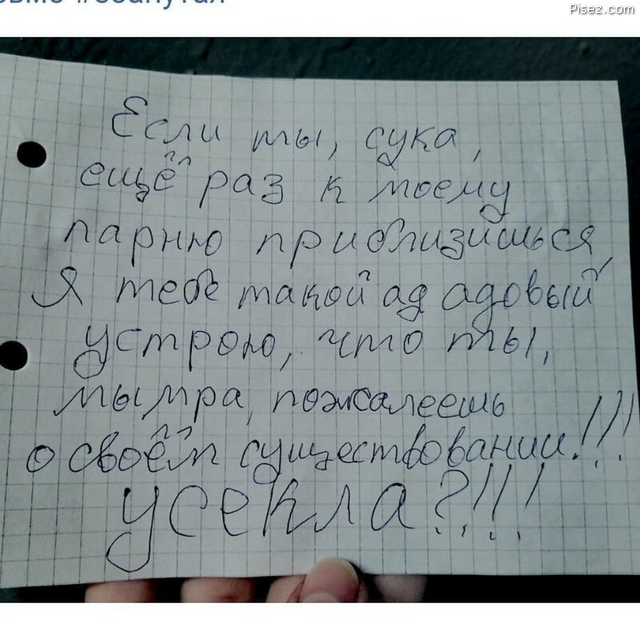 Pisez.com
Если ты, сука,
ещё раз к моему
парню приблизишься,
Я тебе такой ад адовый
устрою, что ты,
мымра, пожалеешь
о своём существовании!!!
усекла?!!!